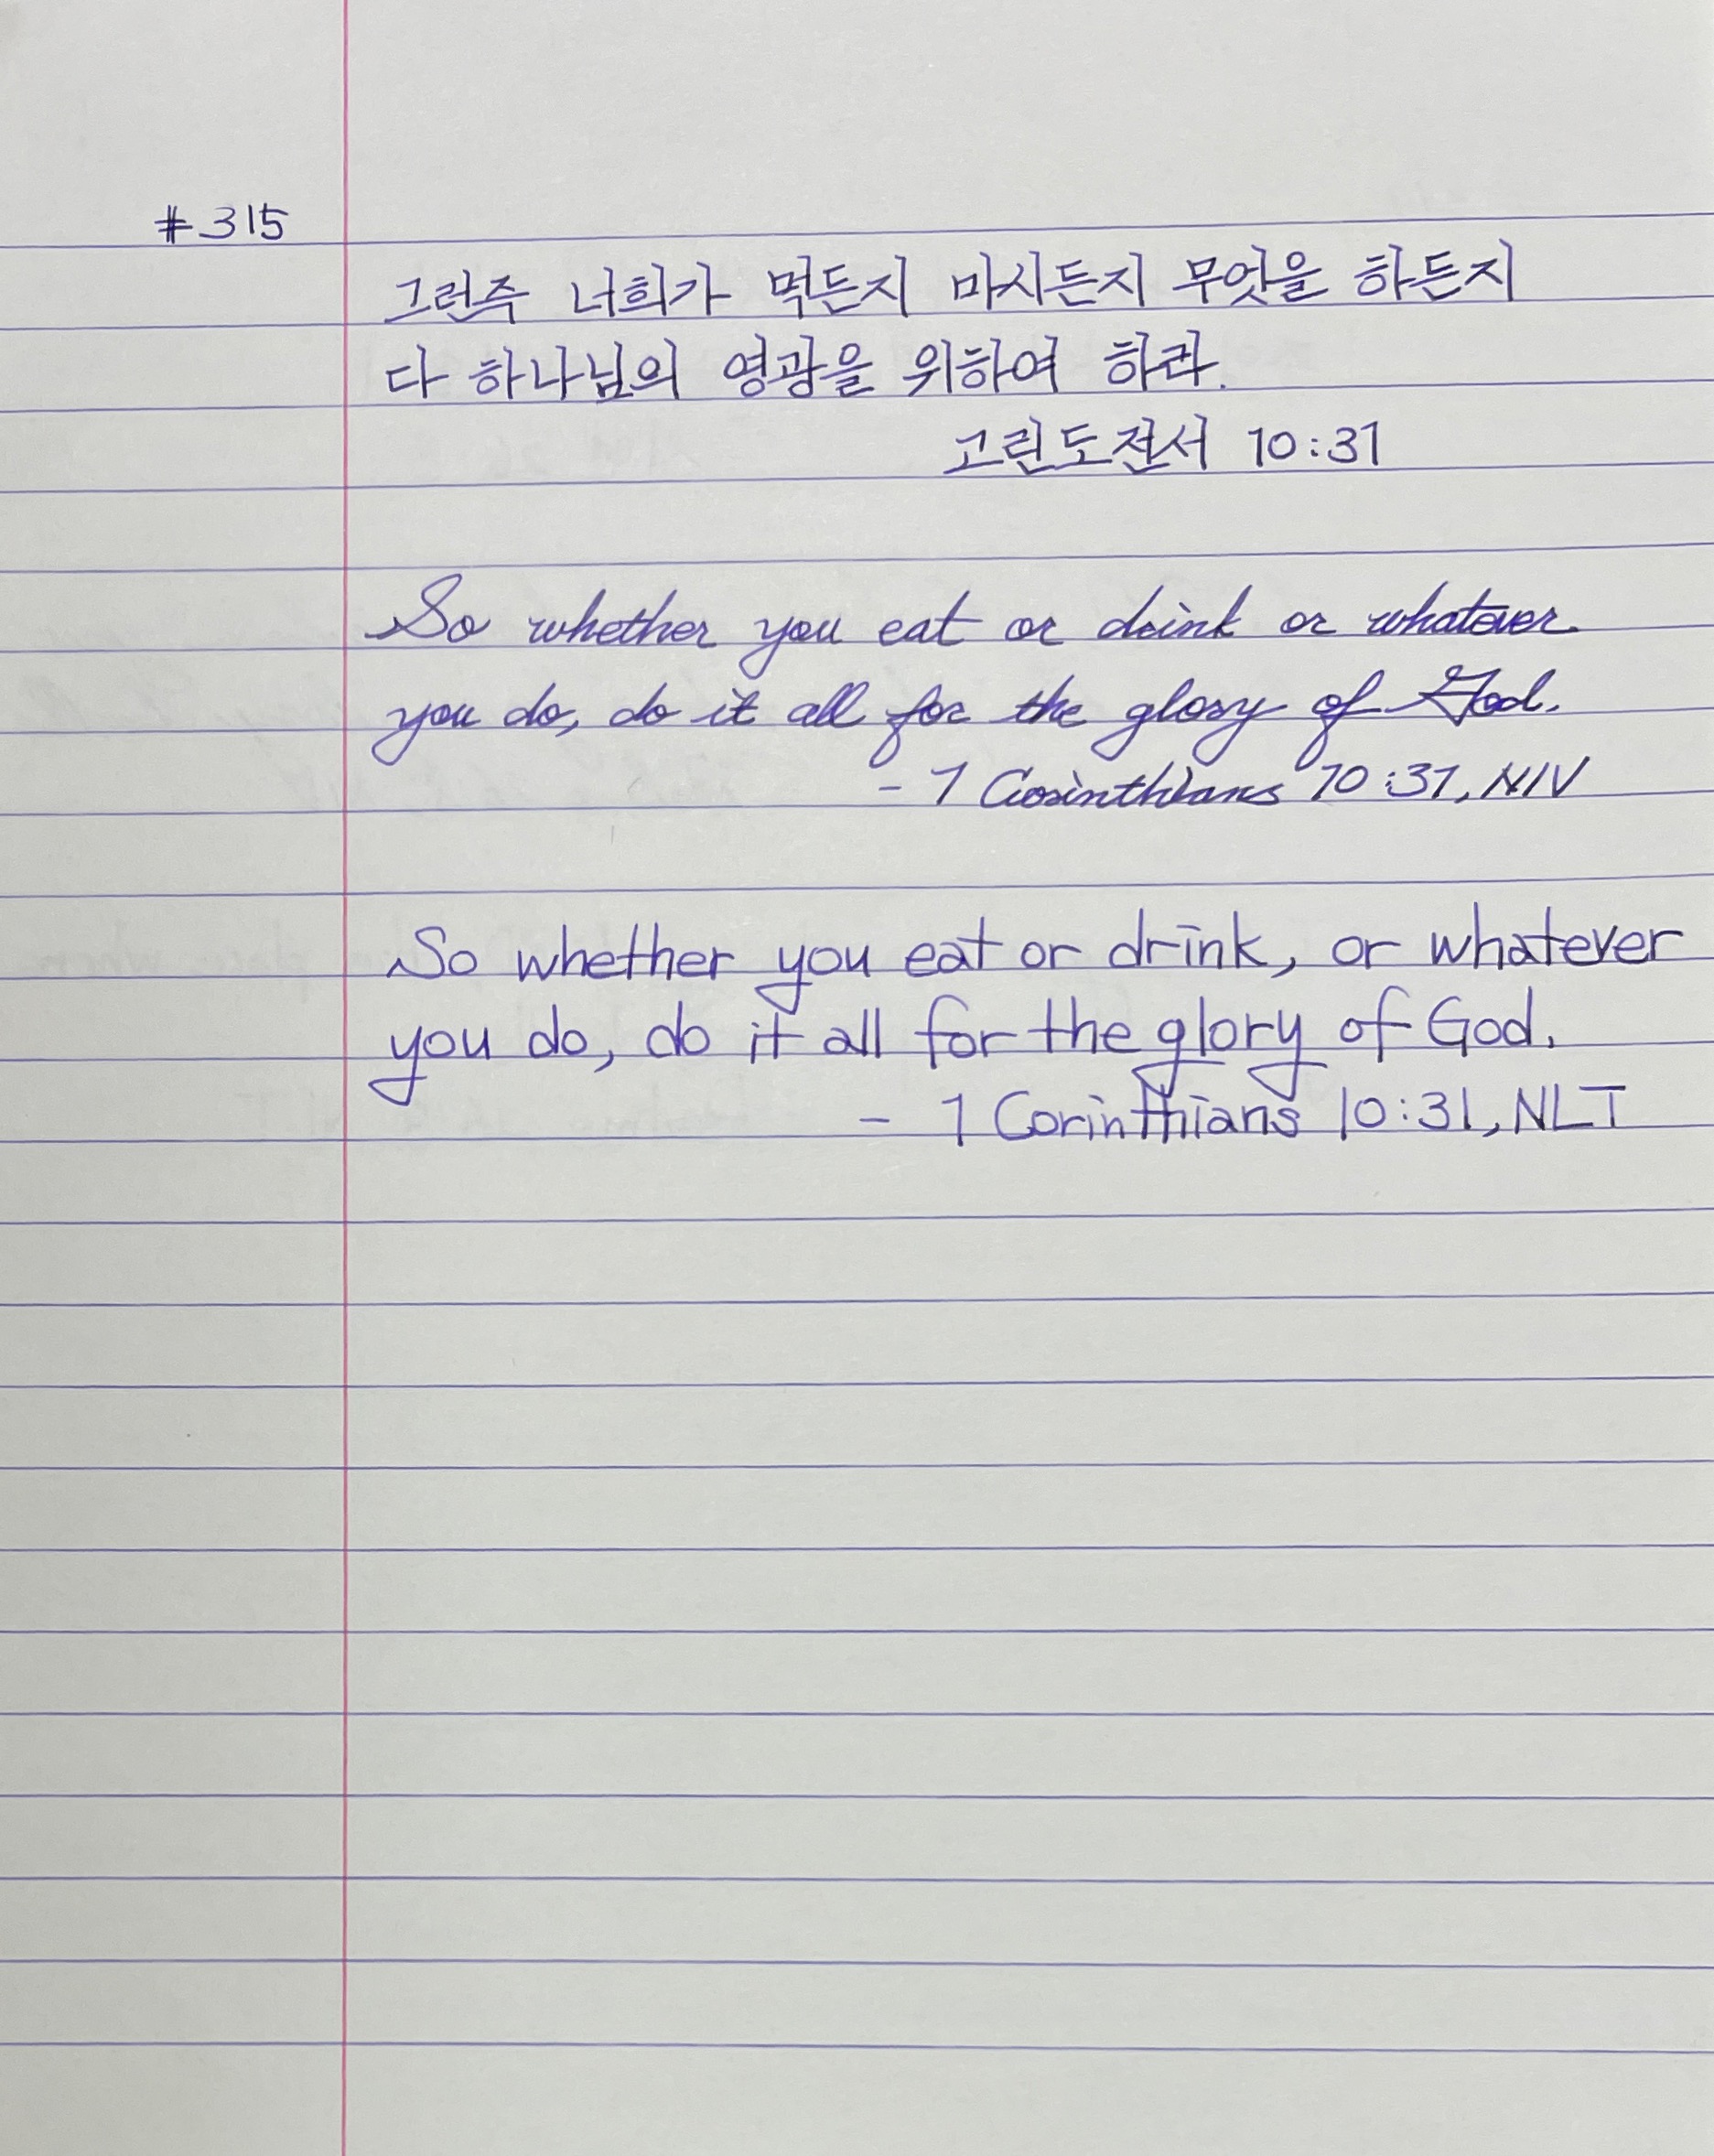 #315
그런즉 너희가 먹든지 마시든지 무엇을 하든지
다 하나님의 영광을 위하여 하라.
고린도전서 10:31
So whether you eat or drink or whatever
you do, do it all for the glory of God.
- 1 Corinthians 10:31, NIV
So whether you eat or drink, or whatever
you do, do it all for the glory of God.
- 1 Corinthians 10:31, NLT